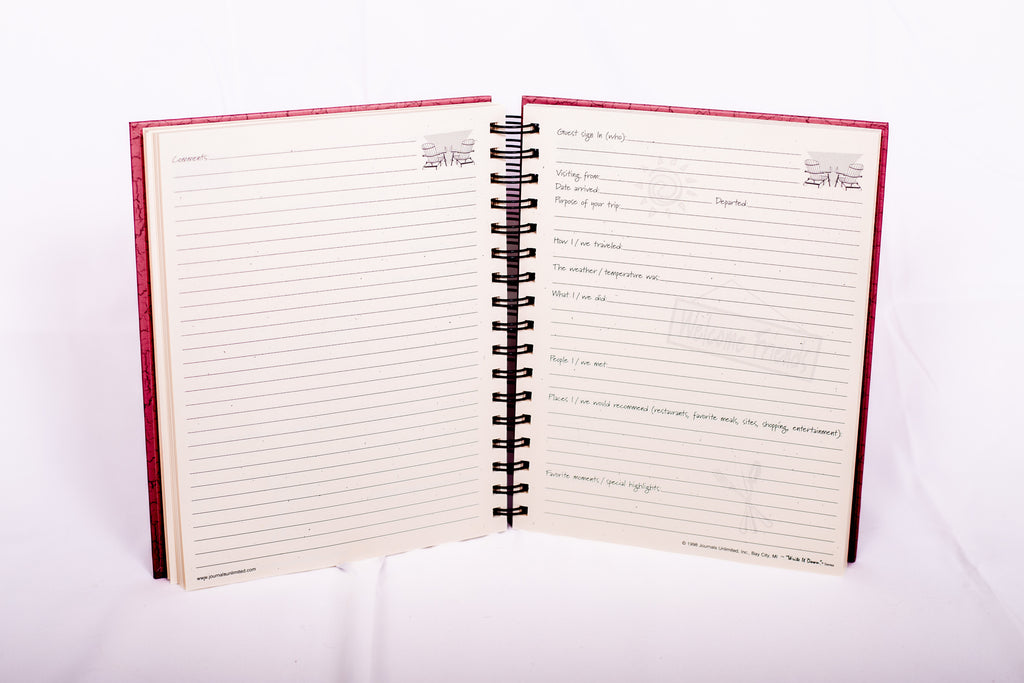 Comments:
www.journalsunlimited.com
Guest sign in (who):
Visiting from:
Date arrived: Departed:
Purpose of your trip:
How I / we traveled:
The weather / temperature was:
What I / we did:
Welcome Friends
People I / we met:
Places I / we would recommend (restaurants, favorite meals, sites, shopping, entertainment):
Favorite moments / special highlights:
© 1998 Journals Unlimited, Inc., Bay City, MI ~ "Write It Down!" Series